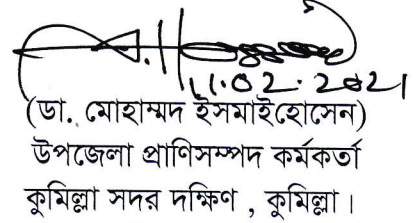 11.02.2021
(ডা. মোহাম্মদ ইসমাইহোসেন)
উপজেলা প্রাণিসম্পদ কর্মকর্তা
কুমিল্লা সদর দক্ষিণ , কুমিল্লা।